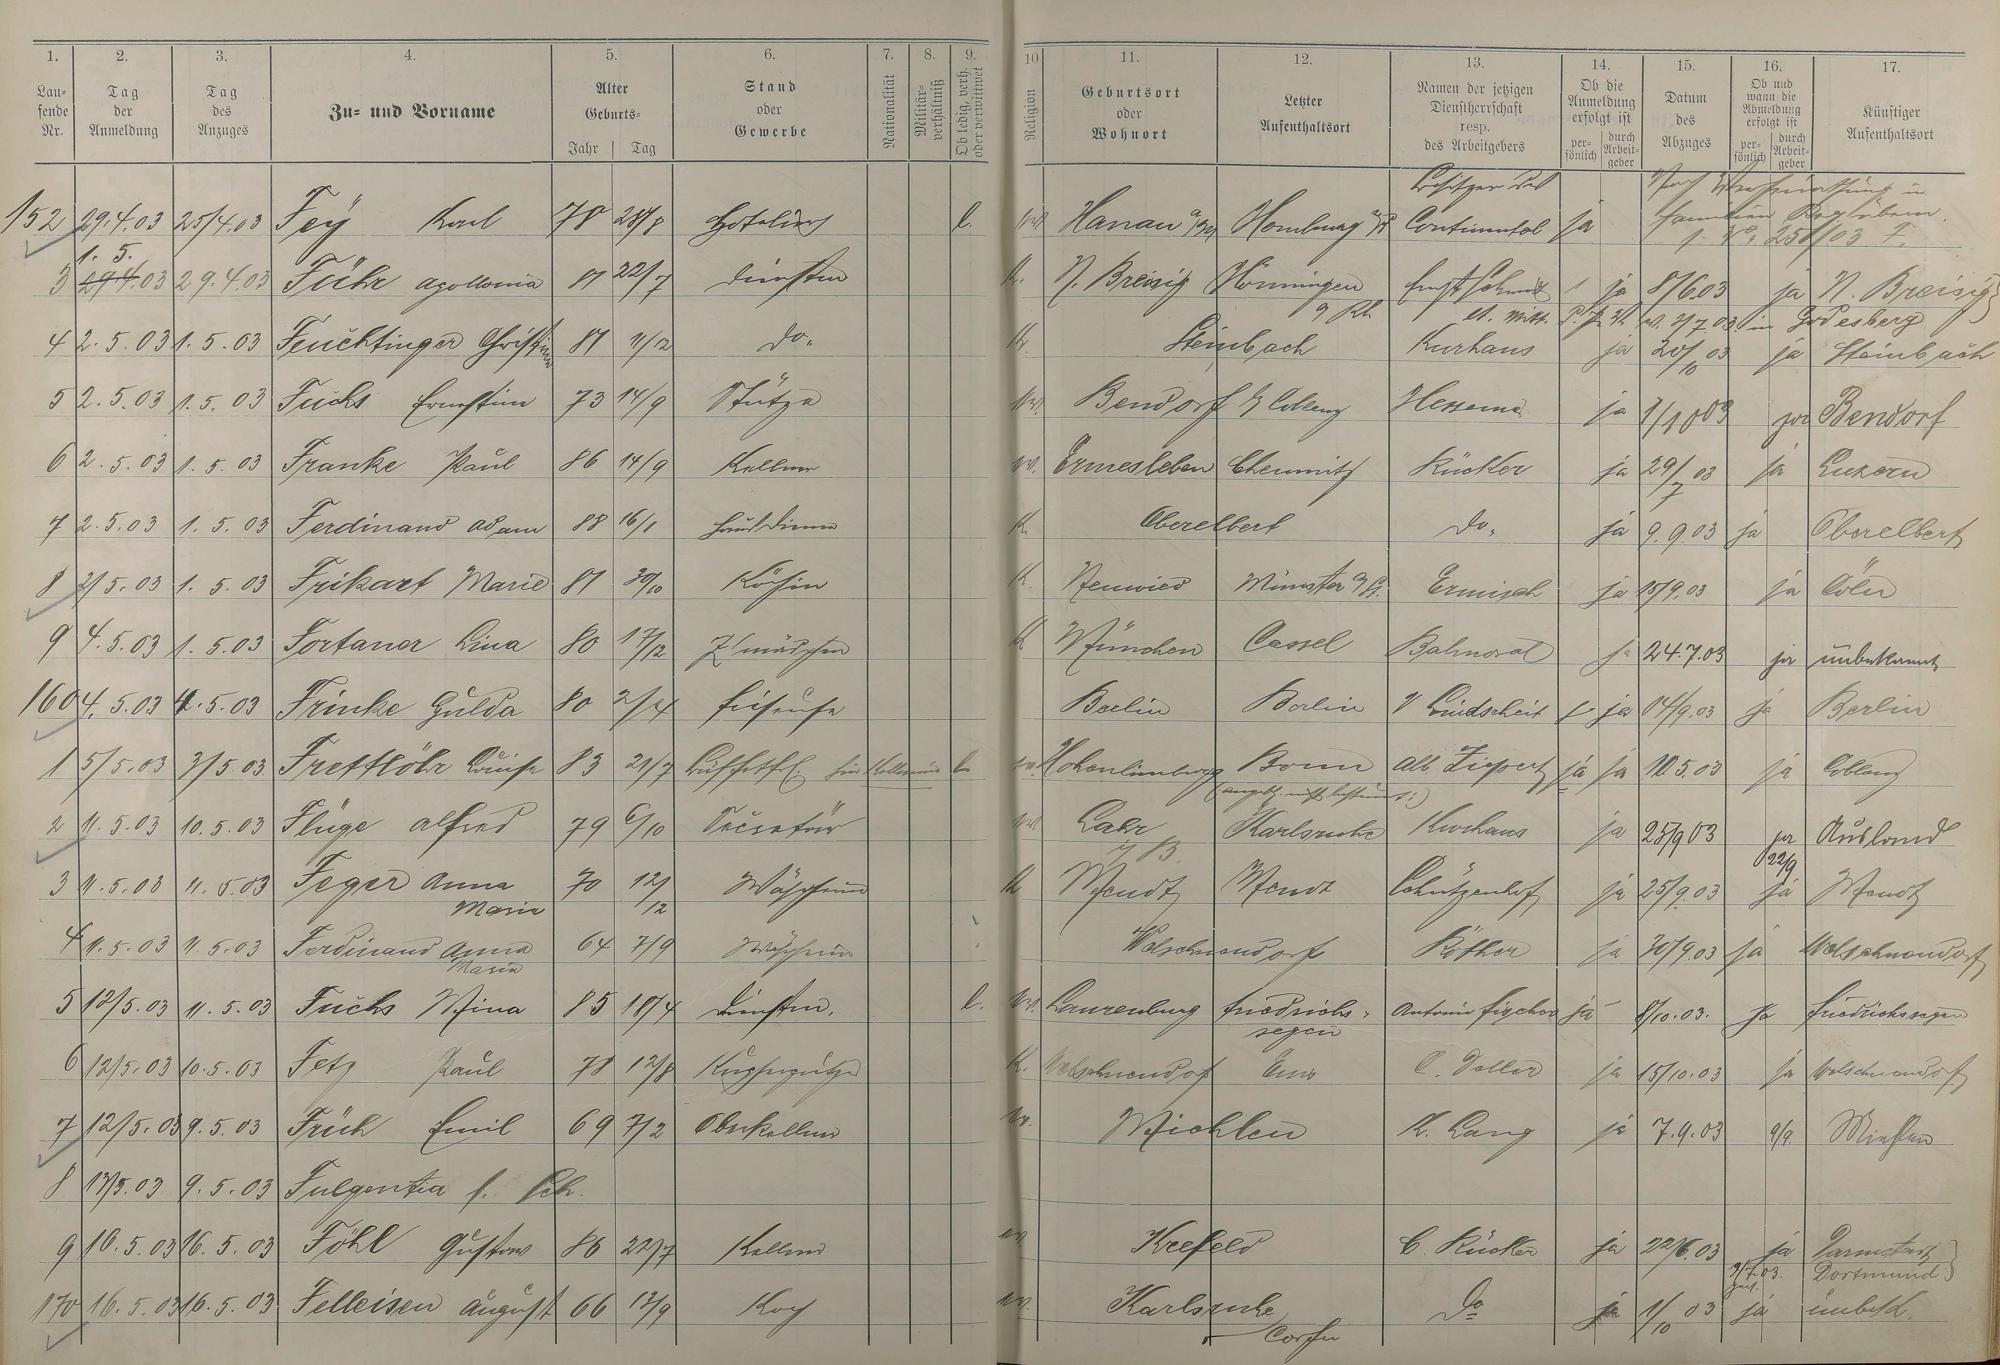 1. 2. 3. 4. 5. 6. 7. 8. 9. 10 11. 12. 13. 14. 15. 16. 17.
Laufende Nr. Tag der Anmeldung Tag des Anzuges Zu- und Vorname Alter Geburts- Jahr Tag Stand oder Gewerbe Nationalität Militär-verhältniß Ob ledig, verh. oder verwittwet Religion Geburtsort oder Wohnort Letzter Aufenthaltsort Namen der jetzigen Dienstherrschaft resp. des Arbeitgebers Ob die Anmeldung erfolgt ist per-sönlich durch Arbeit-geber Datum des Abzuges Ob und wann die Abmeldung erfolgt ist per-sönlich durch Arbeit-geber Künftiger Aufenthaltsort
Besitzer des
152 29.4.03 25/4.03 Fey Karl 78 28/8 Hotelier l. Hanau a/M Homburg Continental ja
1. 5.
3 29.4.03 29.4.03 Führ Apollonia 81 22/7 Dienstm K. N. Breisig Hönningen Ernst Schmidt ja 8/6.03 ja N. Breisig
a Rh. 3/7 03 in Godesberg
4 2.5.03 1.5.03 Feuchtinger Christine 81 11/12 do. K. Steinbach Kurhaus ja 20/10 03 ja Steinbach
5 2.5.03 1.5.03 Fuchs Ernestine 73 14/9 Stütze Bendorf b/ Coblenz ja 1/10 03 Bendorf
6 2.5.03 1.5.03 Franke Paul 86 14/9 Kellner Ermesleben Chemnitz Rücker ja 29/7 03 ja Luzern
7 2.5.03 1.5.03 Ferdinand Adam 88 16/1 Hausdiener K. Oberelbert Do. ja 9.9.03 ja Oberelbert
8 2/5.03 1.5.03 Frikart Marie 81 30/10 Köchin K. Neuwied Münster a/St. Ermisch ja 15/9.03 ja Cöln
9 4.5.03 1.5.03 Fortaner Lina 80 17/12 Z'mädchen K München Cassel Balmoral ja 24.7.03 ja unbekannt
160 4.5.03 4.5.03 Frinke Hulda 80 2/4 Friseuse Berlin Berlin Lindscheit ja 14/9.03 ja Berlin
1 5/5.03 3/5.03 Frettlöhr Louise 83 21/7 l. Hohenlimburg Bonn Alb Ziepert ja ja 10.5.03 ja Coblenz
2 11.5.03 10.5.03 Flüge Alfred 79 6/10 Secretär Lahr Karlsruhe Kurhaus ja 25/9 03 ja Ausland
i/B. 22/9
3 11.5.03 11.5.03 Feger Anna 70 12/12 Wäscherin K Mendt Mendt Schützenhof ja 25/9.03 ja Mendt
Maria
4 11.5.03 11.5.03 Ferdinand Anna 64 7/9 Wäscherin Welschneudorf Röther ja 30/9.03 ja Welschneudorf
Maria
5 12/5.03 11.5.03 Fuchs Mina 85 18/4 Dienstm. l. Laurenburg Friedrichs- Antonie Fischer ja 8/10.03. ja Friedrichssegen
segen
6 12/5.03 10.5.03 Fetz Paul 78 12/8 K. Welschneudorf Ems C. Döller ja 15/10.03 ja Welschneudorf
7 12/5.03 9.5.03 Früh Emil 69 7/2 Oberkellner Miehlen K. Lang ja 7.9.03 9/9. Miehlen
8 13/5.03 9.5.03 Fulgentia f. Sch.
9 16.5.03 16.5.03 Föhl Gustav 86 22/7 Kellner Krefeld C. Rücker ja 22/6.03 ja Darmstadt
9/7.03. Dortmund
170 16.5.03 16.5.03 Felleisen August 66 13/9 Koch Karlsruhe Do ja 1/10 03 ja unbek.
Corfu